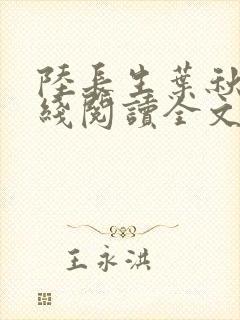 陸長生葉秋
綫閱讀全文
王永洪